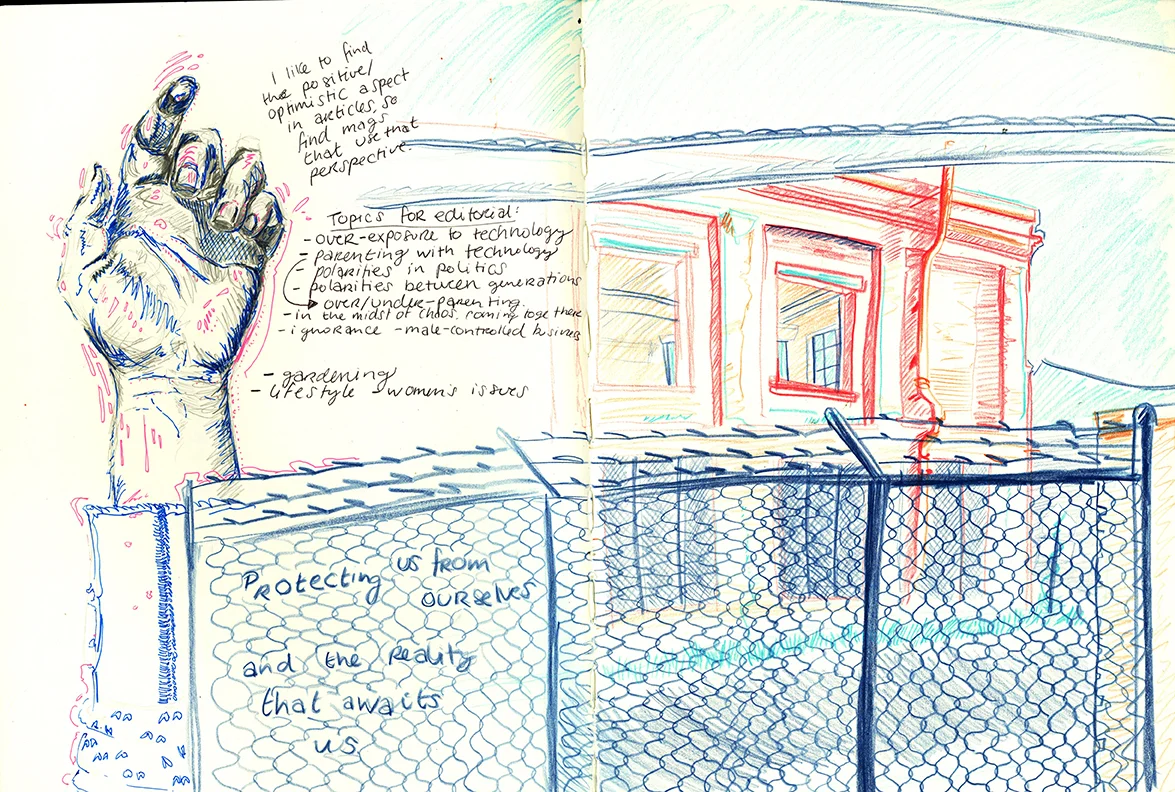 I like to find
the positive/
optimistic aspect
in articles, so
find mags
that use that
perspective.
Topics for editorial:
- over-exposure to technology
- parenting with technology
- polarities in politics
- polarities between generations
over/under-parenting.
- in the midst of chaos, coming together
- ignorance - male-controlled business
- gardening
- lifestyle - women's issues
Protecting us from
ourselves
and the reality
that awaits
us